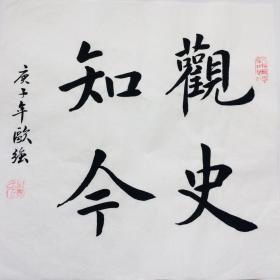 觀史
知今
庚子年歐強